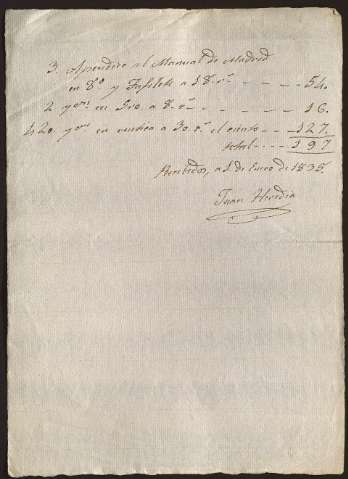 3. Apendice al Manual de Madrid
en 8.º y Tafilete a 18 r.s - - - - 54.
2 yd.m en id.o a 8. r.s - - - - - 16.
420 yd.m en rustica a 30 r.s el ciento - - - 127.
total - - - 197
Recibidos, a 1 de Enero de 1835.
Juan Heredia